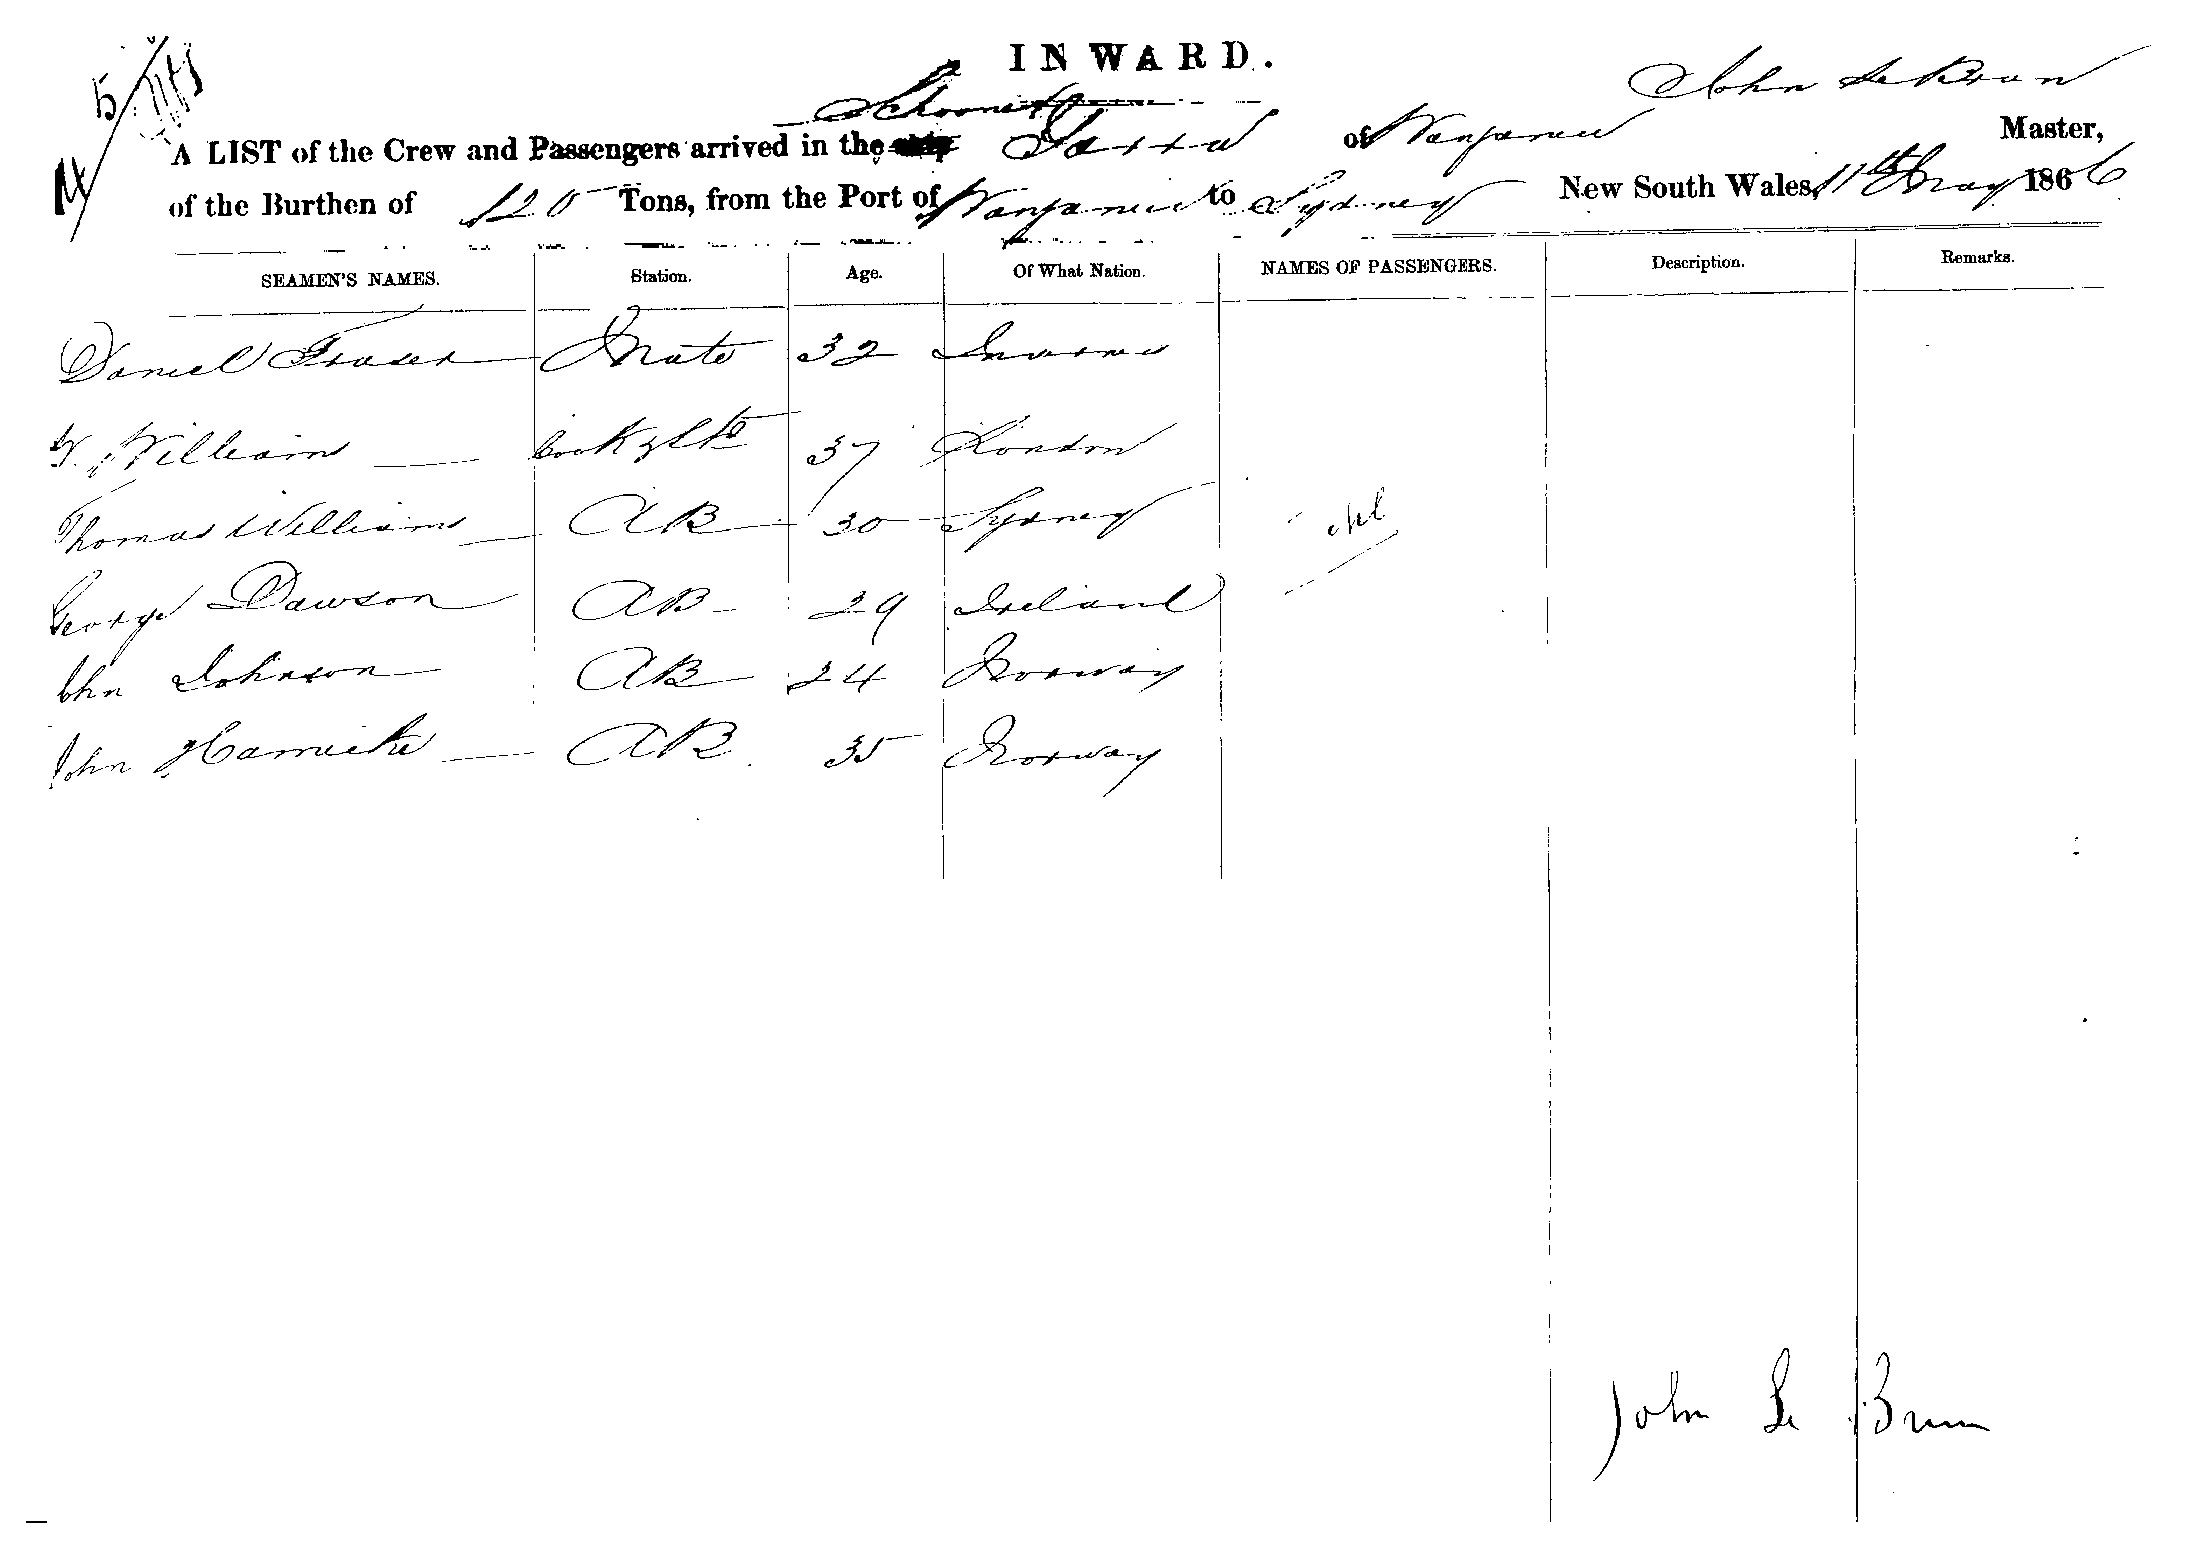 INWARD.
14/5
John Le Brun
Schooner
A LIST of the Crew and Passengers arrived in the ship of Wanganui Master,
of the Burthen of 120 Tons, from the Port of Wanganui to Sydney New South Wales, 11th May 1866
SEAMEN'S NAMES. Station. Age. Of What Nation. NAMES OF PASSENGERS. Description. Remarks.
Daniel Fraser Mate 32
W. William Cook & Std 37 London
Thomas Williams AB 30 Sydney
George Dawson AB 29 Ireland
John Johnson AB 24 Norway
John AB 35 Norway
John Le Brun